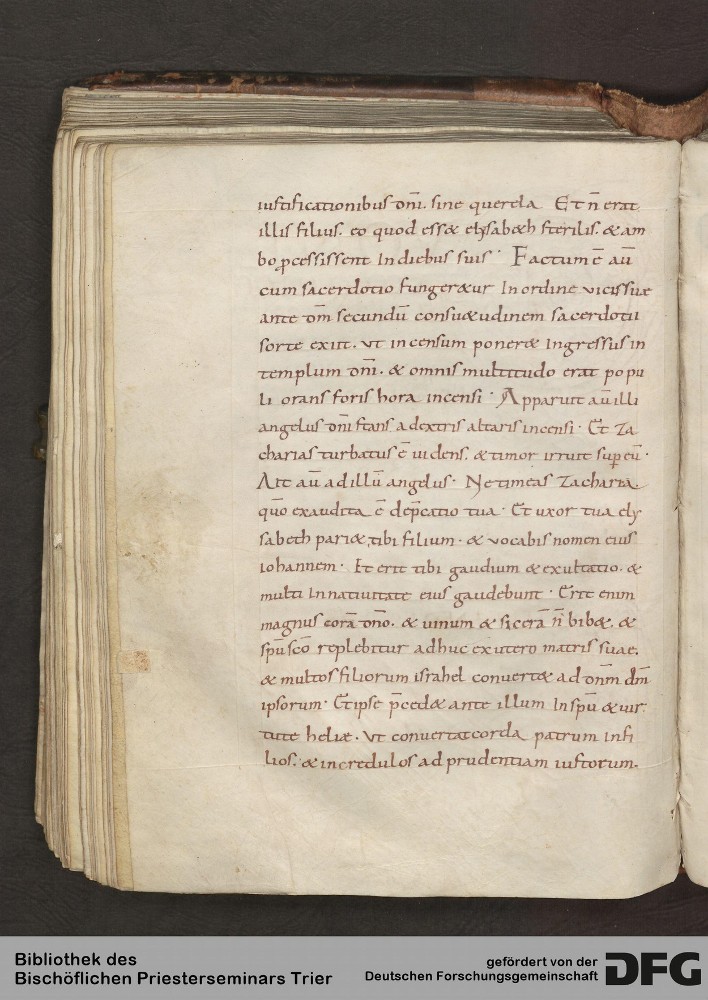 iustificationibus dn̄i. sine querela Et n̄ erat
illis filius. eo quod ess& elysab&h sterilis. & am
bo ꝓcessissent In diebus suis · Factum ē aū
cum sacerdotio funger&ur In ordine vicissue
ante dm̄ secundū consu&udinem sacerdotii
sorte exiit. vt incensum poner& Ingressus in
templum dn̄i. & omnis multitudo erat popu
li orans foris hora incensi · Apparuit aū illi
angelus dn̄i stans a dextris altaris incensi · Et Za
charias turbatus ē uidens. & timor irruit sup eū ·
Ait aū ad illū angelus · Ne timeas Zacharia.
quō exaudita ē dep̄catio tua · Et uxor tua ely
sabeth pari& tibi filium · & vocabis nomen eius
iohannem · Et erit tibi gaudium & exultatio. &
multi In natiuitate eius gaudebunt · Erit enim
magnus corā dn̄o. & uinum & sicerā n̄ bib&. &
sp̄u scō replebitur adhuc ex utero matris suae.
& multos filiorum israhel conuert& ad dn̄m dm̄
ipsorum · Et ipse p̄ced& ante illum In sp̄u & uir
tute heliæ. Vt conuertat corda patrum in fi
lios. & incredulos ad prudentiam iustorum.
Bibliothek des
Bischöflichen Priesterseminars Trier
gefördert von der
Deutschen Forschungsgemeinschaft
DFG